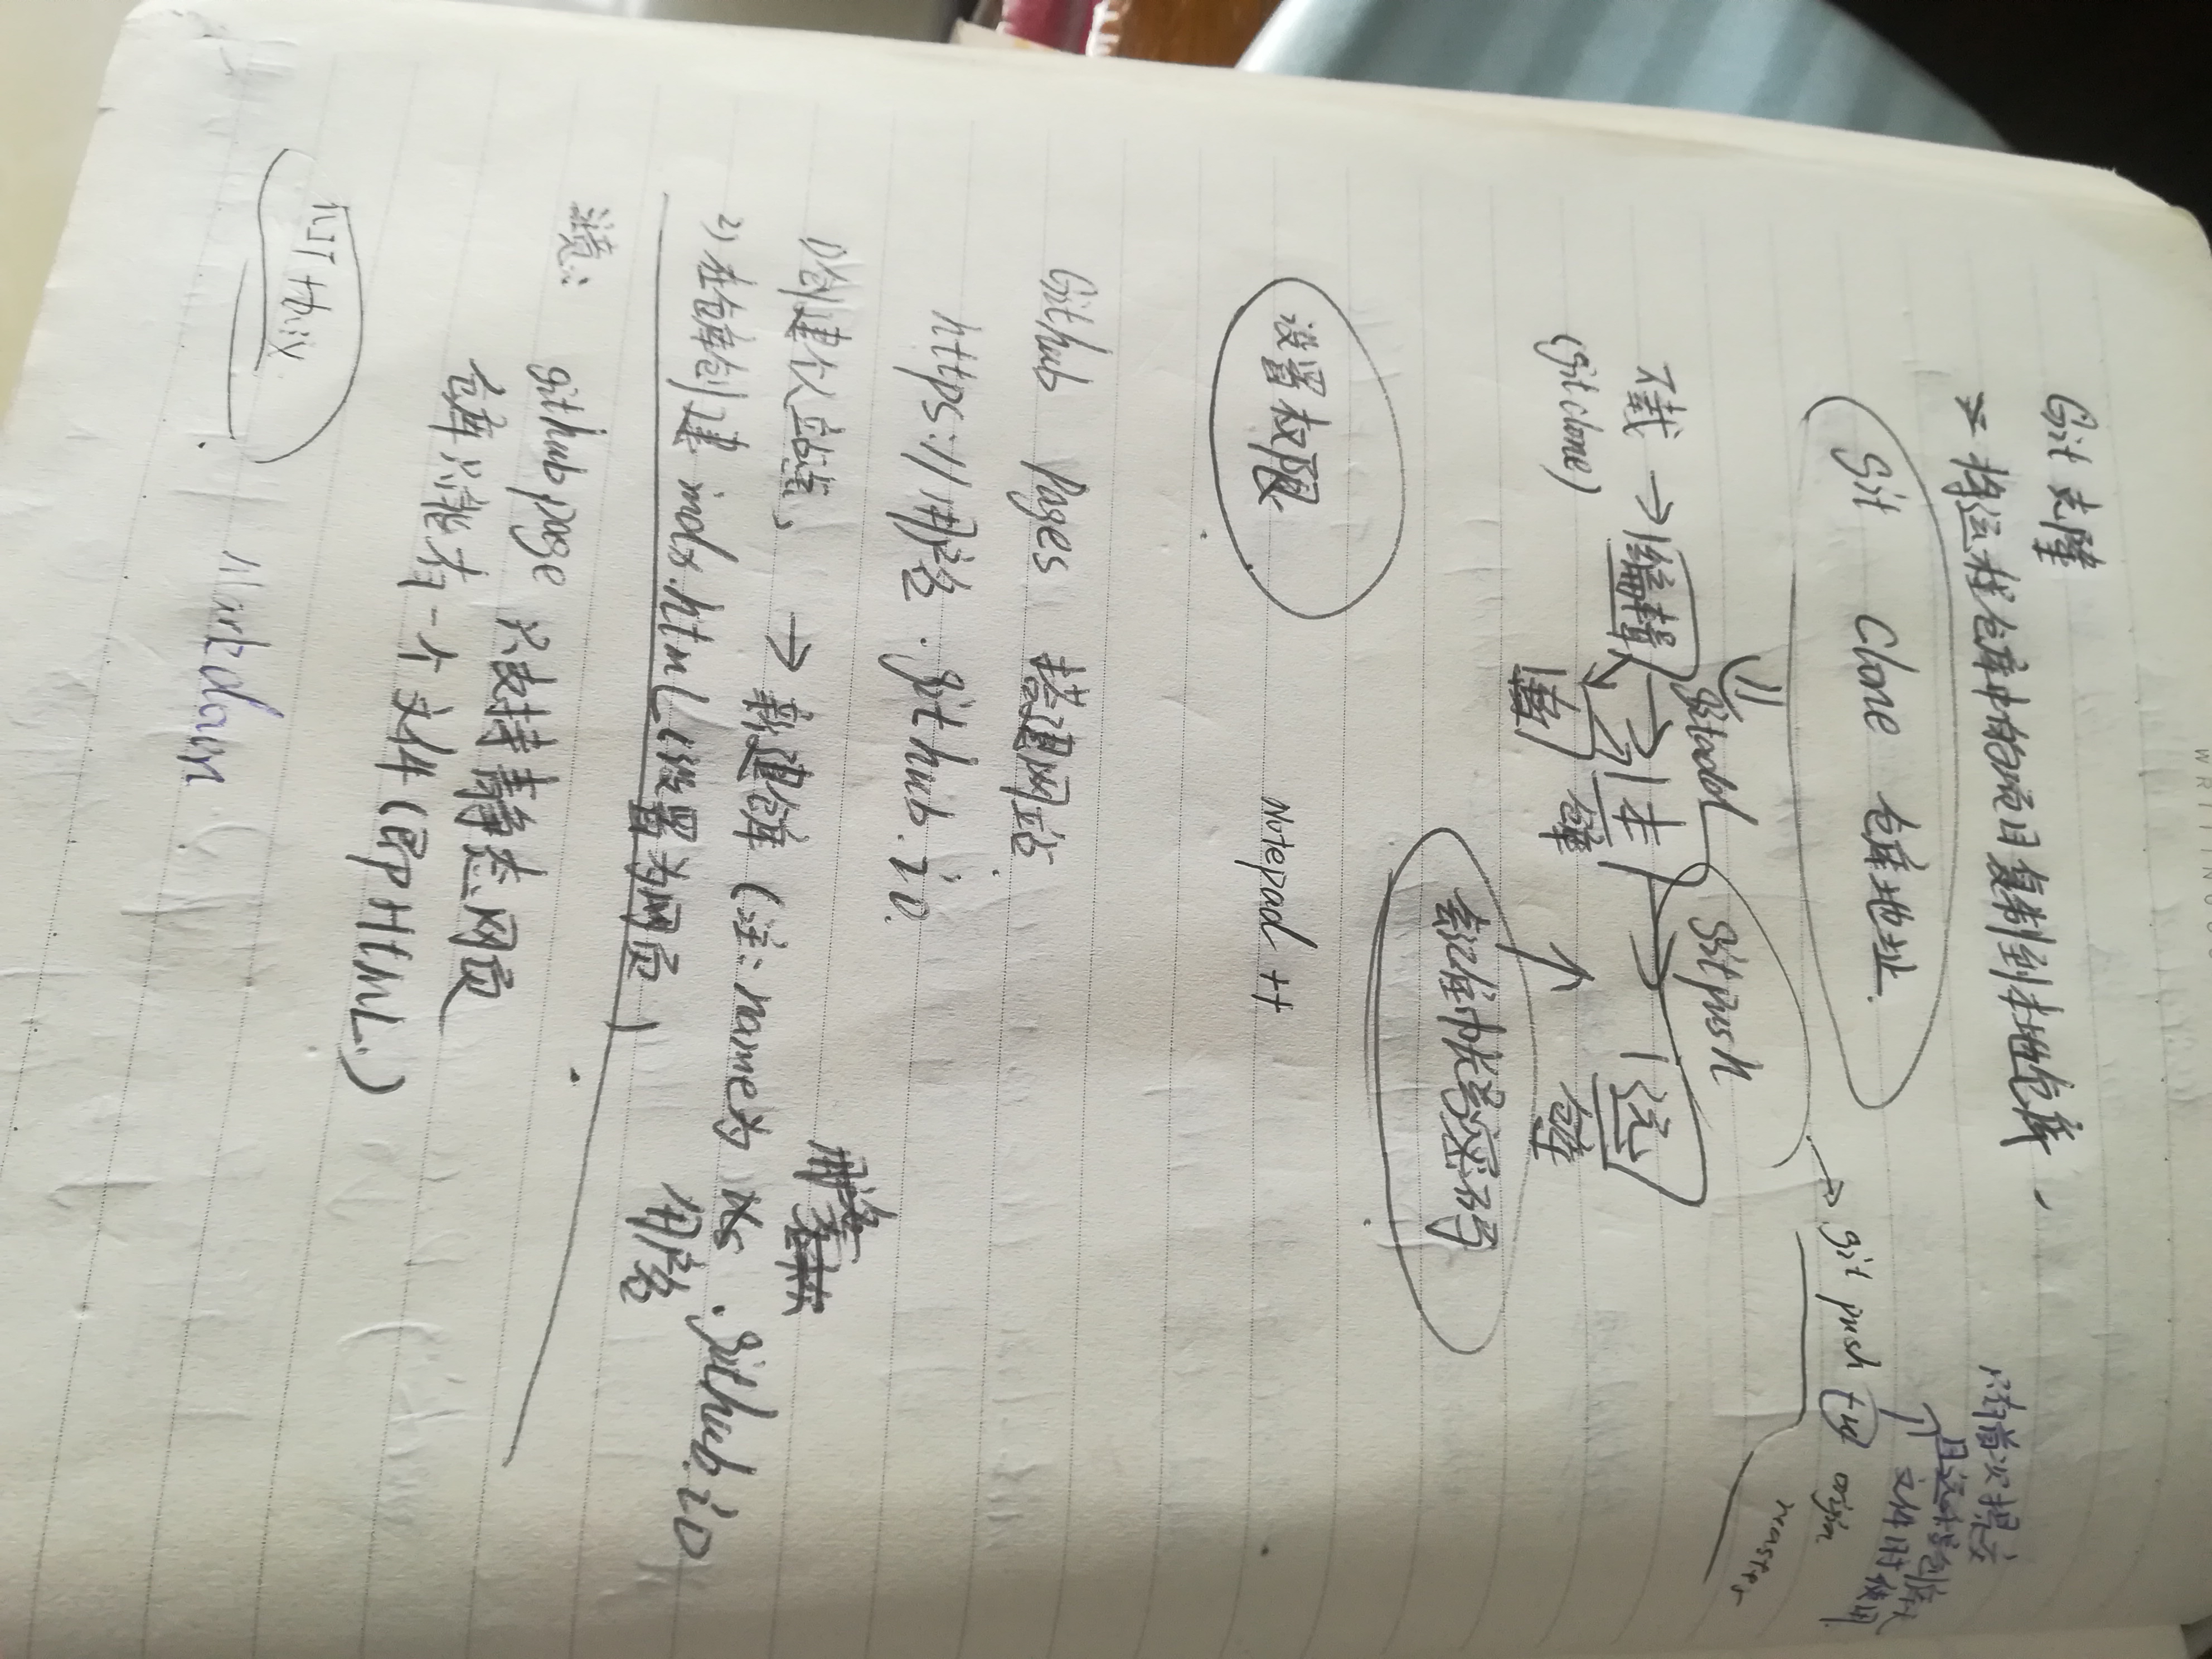 Git 克隆
→ 将远程仓库中的项目复制到本地仓库
Git Clone 仓库地址.
git push
origin
master
当首次提交
文件时使用
git add
git push
下载 → 编辑 → 本 → 远
(git clone)
仓库
仓库
忘记账号密码
设置权限
Notepad ++
Github Pages 搭建网站
https://用户名.github.io.
1)创建个人站点 → 新建仓库 (注: name为 .github.io
用户名
2) 在仓库创建 index.html (设置为网页)
注意:
github page 只支持静态网页
仓库只能有一个文件 (即 Html.)
协议
Markdown